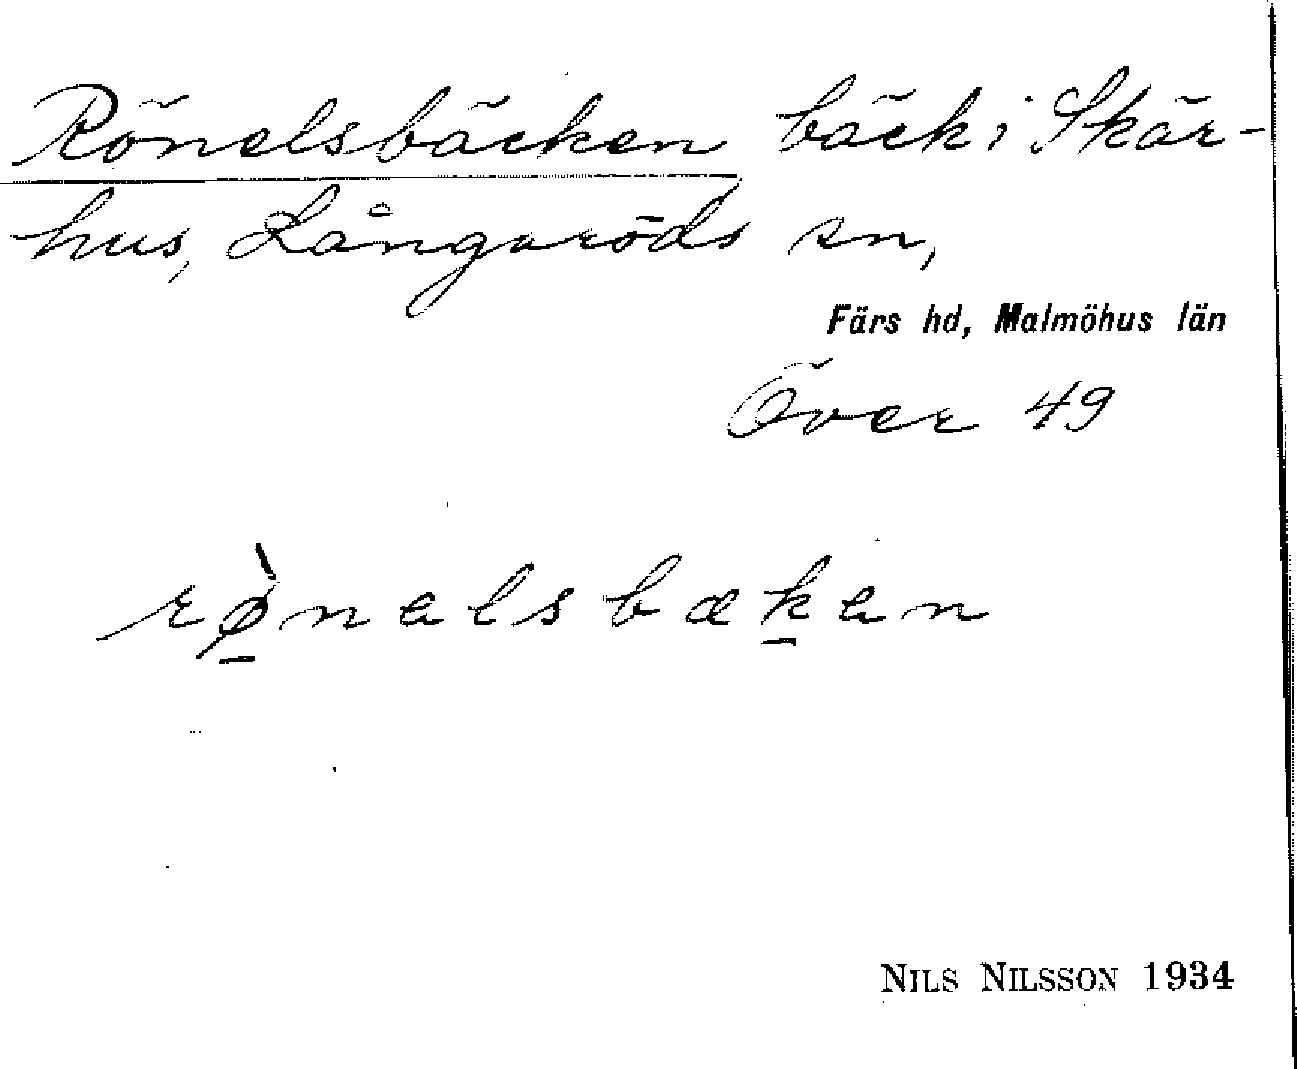 Rönelsbäcken bäck i Skär-
hus, Långaröds sn,
Färs hd, Malmöhus län
Över 49
rø̠̀nelsbæḵen
NILS NILSSON 1934